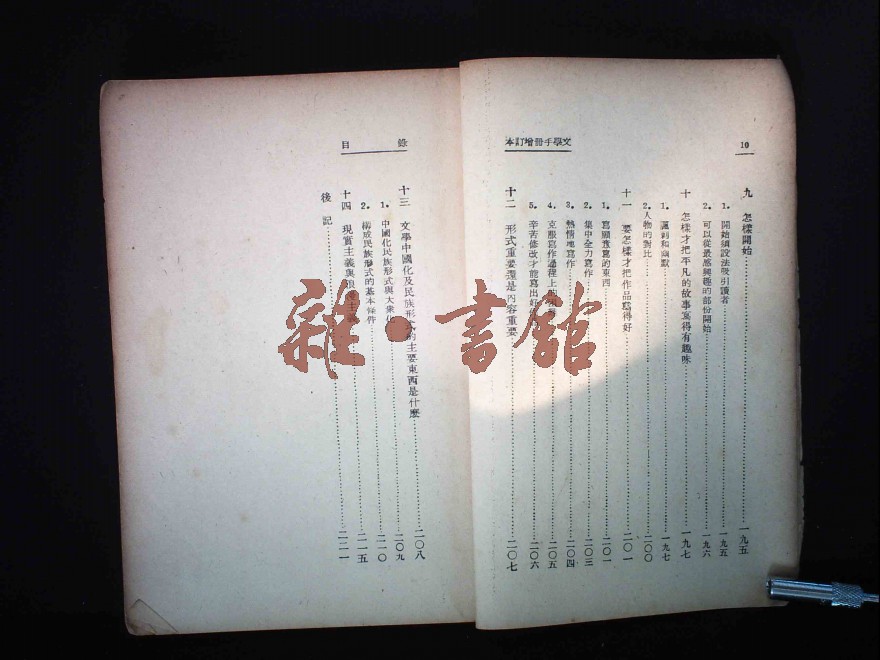 10
文學手冊增訂本
九 怎樣開始 一九五
1. 開始須設法吸引讀者 一九五
2. 可以從最感興趣的部份開始 一九六
十 怎樣才把平凡的故事寫得有趣味 一九七
1. 諷刺和幽默 一九七
2. 人物的對比 二〇〇
十一 要怎樣才把作品寫得好 二〇一
1. 寫願意寫的東西 二〇一
2. 集中全力寫作 二〇三
3. 熱情地寫作 二〇四
4. 克服寫作過程上的 二〇五
5. 辛苦修改才能寫出好 二〇六
十二 形式重要還是內容重要 二〇七
目錄
十三 文學中國化及民族形式的主要東西是什麼 二〇八
1. 中國化民族形式與大衆化 二〇九
2. 構成民族形式的基本條件 二一〇
十四 現實主義與浪漫主義 二一五
後記 二二一
雜·書館